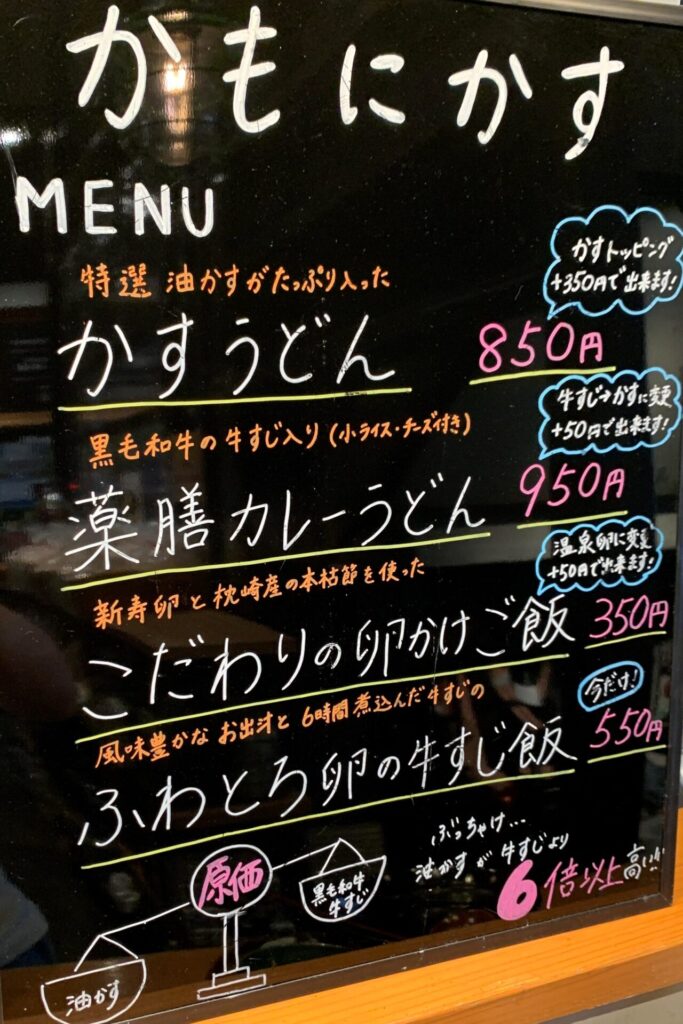 かもにかす
MENU
特選 油かすがたっぷり入った
かすトッピング
+350円で出来ます!
かすうどん 850円
黒毛和牛の牛すじ入り(小ライス・チーズ付き)
牛すじ→かすに変更
+50円で出来ます!
薬膳カレーうどん 950円
新寿卵と枕崎産の本枯節を使った
温泉卵に変更
+50円で出来ます!
こだわりの卵かけご飯 350円
風味豊かなお出汁と6時間煮込んだ牛すじの
今だけ!
ふわとろ卵の牛すじ飯 550円
ぶっちゃけ...
油かすが牛すじより
6倍以上高い!!
原価
黒毛和牛
牛すじ
油かす